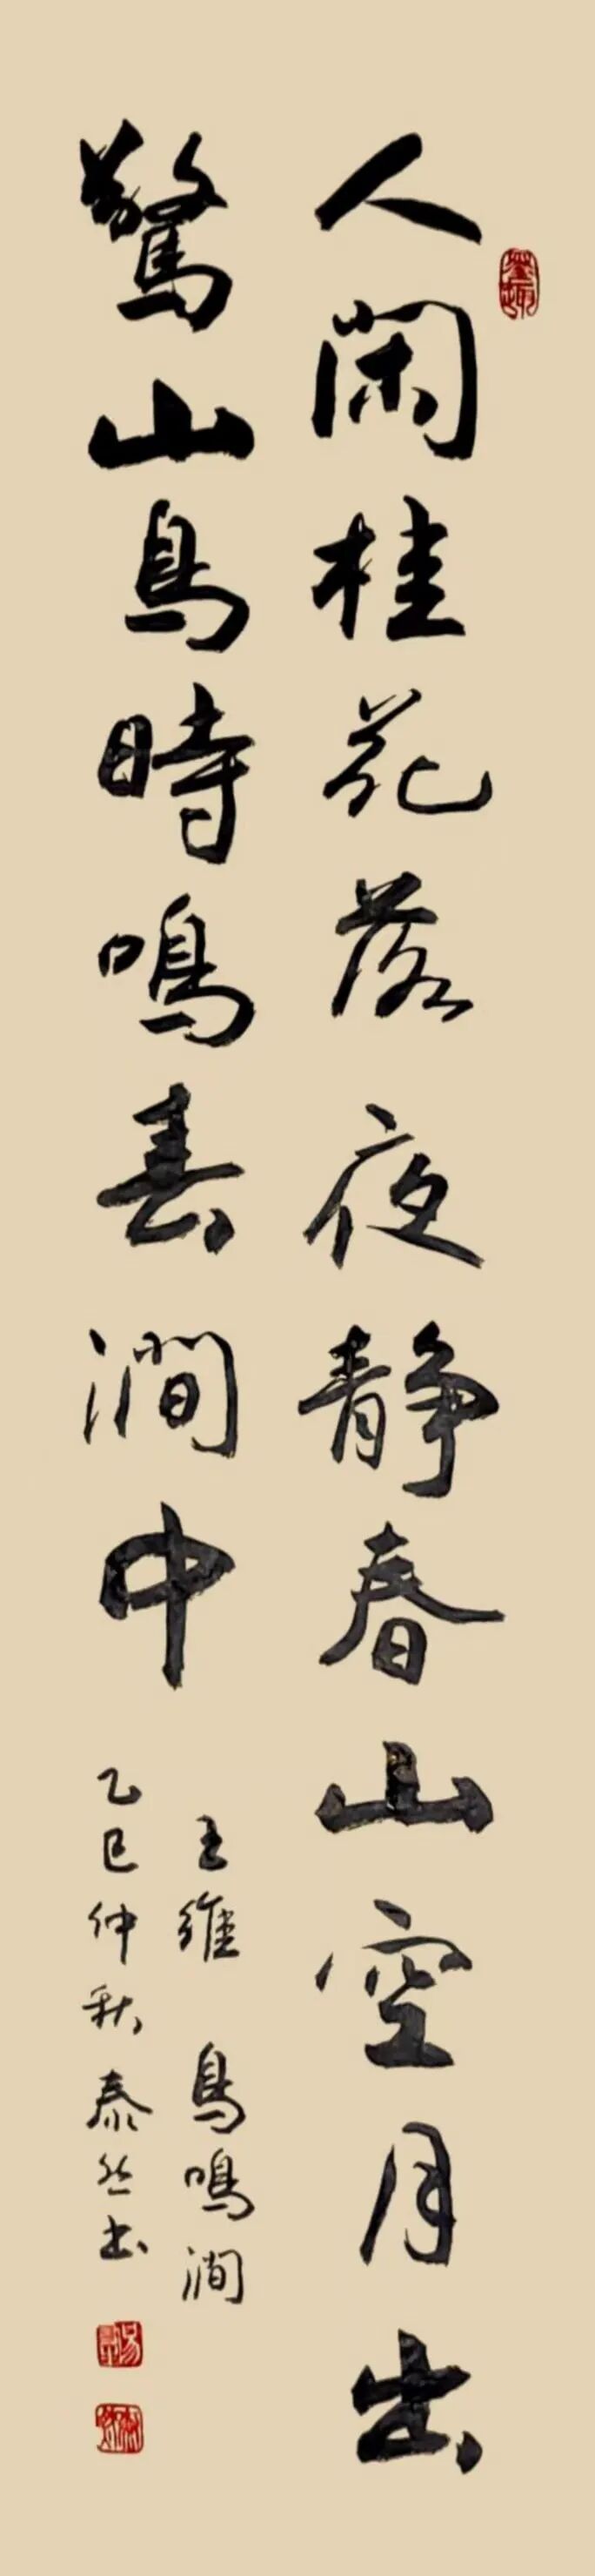 人閑桂花落夜静春山空月出
驚山鳥時鳴春澗中
王維 鳥鳴澗
乙巳仲秋泰然书